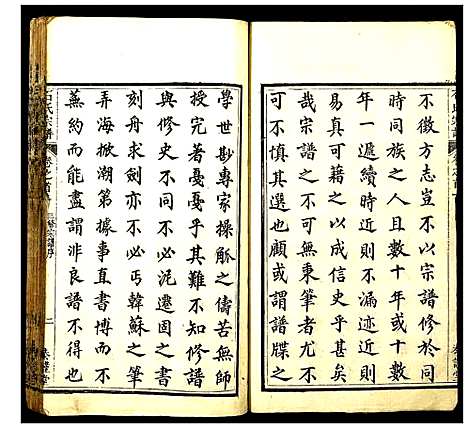 不徵方志豈不以宗譜修於同
時同族之人且數十年或十數
年一遞續時近則不漏迹近則
不忘可藉之以成信史乎甚矣
哉宗譜之不可無秉筆者尤不
可不慎其選也顧或謂譜牒之
學世尠專家操觚之儔苦無師
授於是戞戞乎其難不知修譜
與修史不同不必泥遷固之書
刻舟求劍亦不必丐韓蘇之筆
弄海掀潮第據事直書博而不
蕪約而能盡謂非良譜不得也
石氏宗譜
卷之首
二